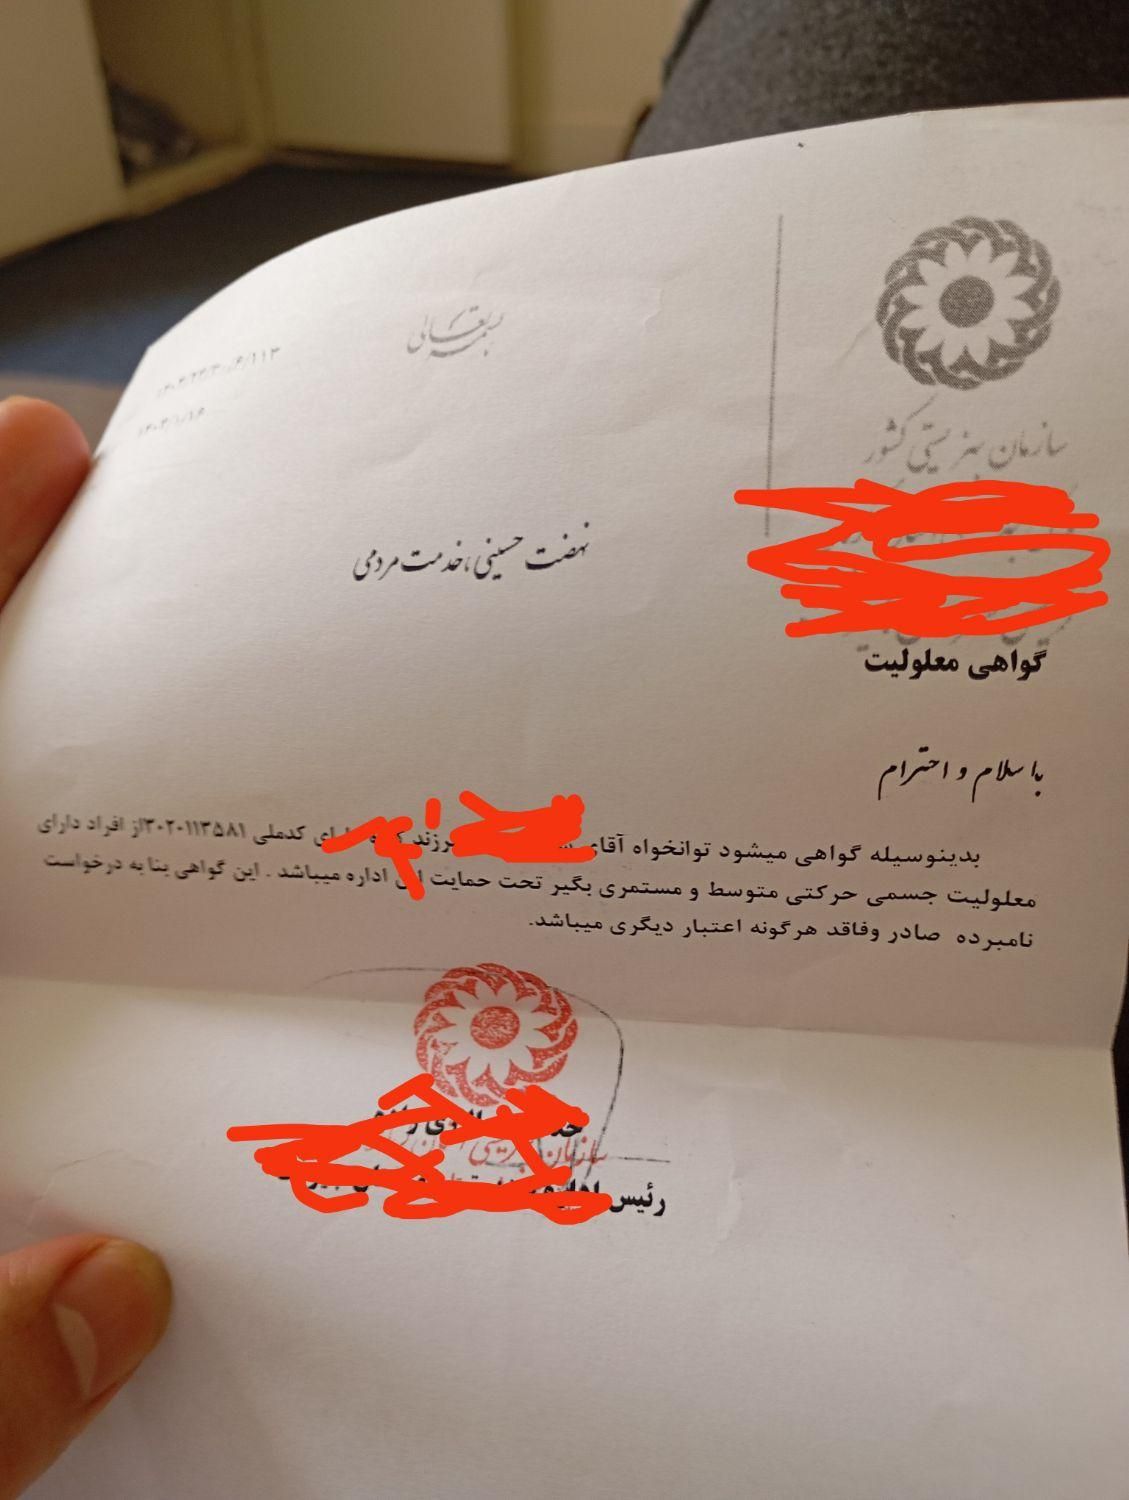 بسمه تعالی
۱۴۰۳/۱/۱۶
سازمان بهزیستی کشور
نهضت حسینی، خدمت مردمی
گواهی معلولیت
با سلام و احترام
بدینوسیله گواهی میشود توانخواه آقای فرزند کدملی ۳۰۲۰۱۱۳۵۸۱از افراد دارای
معلولیت جسمی حرکتی متوسط و مستمری بگیر تحت حمایت این اداره میباشد . این گواهی بنا به درخواست
نامبرده صادر وفاقد هرگونه اعتبار دیگری میباشد.
سازمان بهزیستی
رئیس اداره